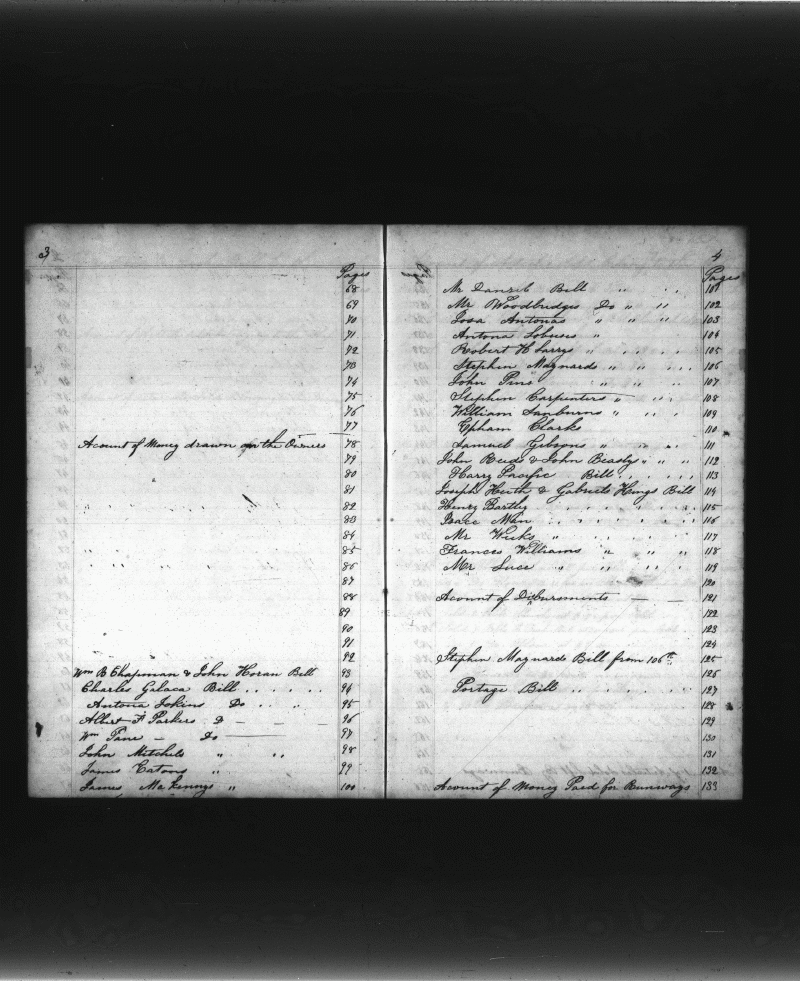 3
Pages
68
69
70
71
72
73
74
75
76
77
Acount of Money drawn on the Owners 78
79
80
81
" " " " " 82
83
84
" " " " " 85
" " " " " 86
87
88
89
90
91
92
Wm B Chapman & John Horan Bill 93
Charles Galaca Bill 94
Antona Jokins Do 95
Albert F Parkers D 96
Wm Pane Do 97
John Mitchels " " 98
James Eatons " 99
James McKennys " 100
4
Pages
Mr Daniels Bill " " 101
Mr Woodbridges Do " " 102
Josa Antonas " " " 103
Antona " " 104
Robert H " 105
Stephen Maynards " " 106
John Pins " " " 107
Stephen Carpenters " " 108
William Sanburns " " 109
Epham Clarks 110
Samuel Gibsons " " " 111
John Reids & John Beaslys " " " 112
Harry Pacific Bill 113
Joseph Heith & Gabriels Kings Bill 114
Henry Bartley 115
Isacc Man 116
Mr Weeks " " " 117
Frances Williams " " " 118
Mr Luce " " " 119
120
Acount of Disbursments 121
122
123
124
Stephen Maynards Bill from 106th 125
126
Portage Bill 127
128
129
130
131
132
Acount of Money Paid for Runways 133